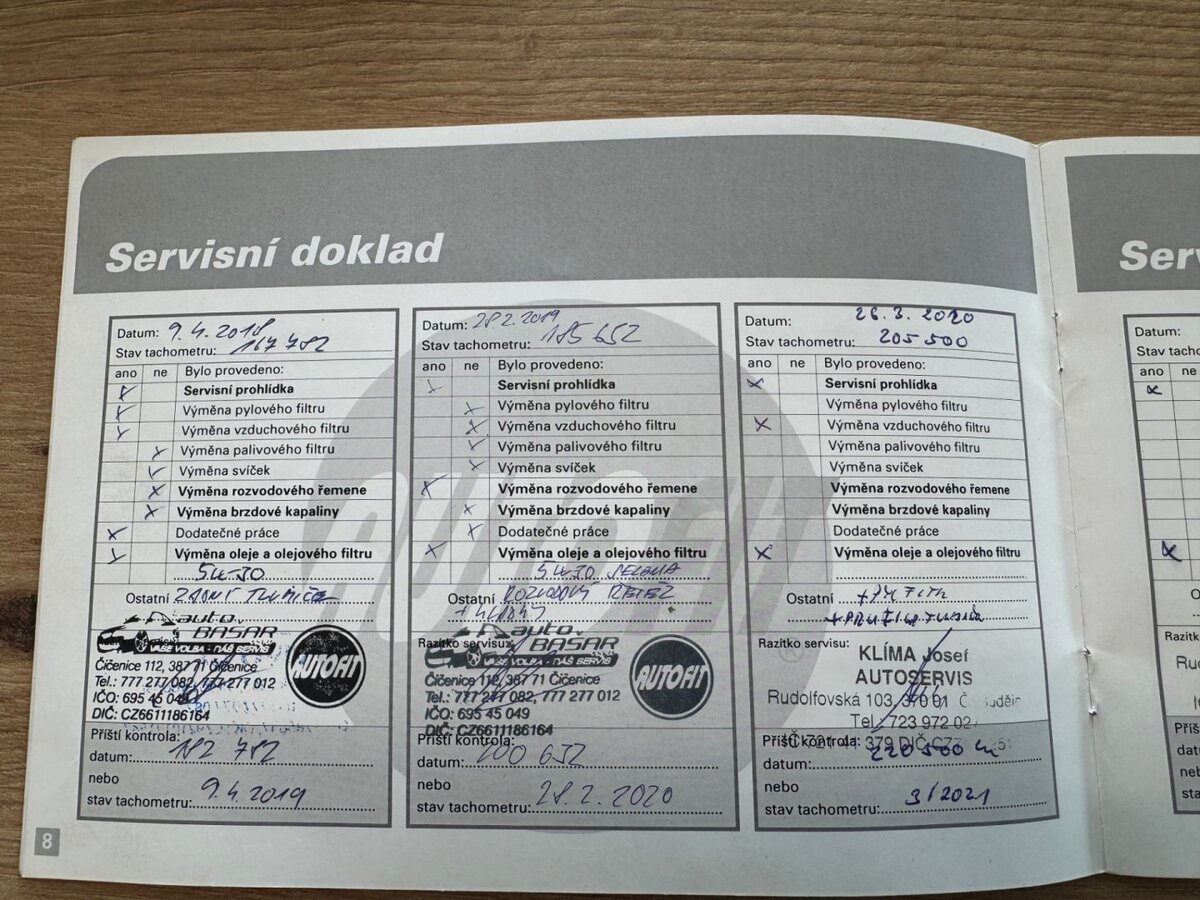 Servisní doklad
Datum: 9.4.2018
Stav tachometru: 167 782
ano ne Bylo provedeno:
Servisní prohlídka
Výměna pylového filtru
Výměna vzduchového filtru
Výměna palivového filtru
Výměna svíček
Výměna rozvodového řemene
Výměna brzdové kapaliny
Dodatečné práce
Výměna oleje a olejového filtru
5W-30
Ostatní ZADNÍ TLUMIČE
auto
BASAR
VAŠE VOLBA - NÁŠ SERVIS
Čičenice 112, 387 71 Čičenice
Tel.: 777 277 082, 777 277 012
IČO: 695 45 049
DIČ: CZ6611186164
AUTOFIT
Příští kontrola:
datum: 182 782
nebo
stav tachometru: 9.4.2019
Datum: 28.2.2019
Stav tachometru: 185 652
ano ne Bylo provedeno:
Servisní prohlídka
Výměna pylového filtru
Výměna vzduchového filtru
Výměna palivového filtru
Výměna svíček
Výměna rozvodového řemene
Výměna brzdové kapaliny
Dodatečné práce
Výměna oleje a olejového filtru
5W-30
Ostatní ROZVODOVÝ ŘETĚZ
Razítko servisu:
auto
BASAR
VAŠE VOLBA - NÁŠ SERVIS
Čičenice 112, 387 71 Čičenice
Tel.: 777 277 082, 777 277 012
IČO: 695 45 049
DIČ: CZ6611186164
AUTOFIT
Příští kontrola:
datum: 200 652
nebo
stav tachometru: 28.2.2020
Datum: 26.3.2020
Stav tachometru: 205 500
ano ne Bylo provedeno:
Servisní prohlídka
Výměna pylového filtru
Výměna vzduchového filtru
Výměna palivového filtru
Výměna svíček
Výměna rozvodového řemene
Výměna brzdové kapaliny
Dodatečné práce
Výměna oleje a olejového filtru
Ostatní
Razítko servisu:
KLÍMA Josef
AUTOSERVIS
Rudolfovská 103, 370 01 Č
Tel. 723 972 02
Příští kontrola: 379 DIČ
datum: 220 500 km
nebo
stav tachometru: 3/2021
8
Serv
Datum:
Stav tacho
ano ne
Razítk
Příš
dat
neb
sta